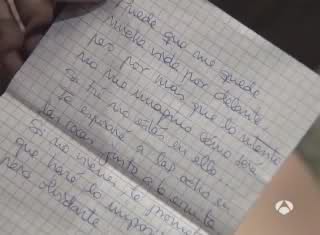 Puede que me quede
mucha vida por delante,
pero por más que lo intente
no me imagino cómo será
si tú no estás en ella.
Te esperaré a las ocho en
las junto a la ermita
Si no vienes, te prometo
que haré lo imposible
pero obstante
3